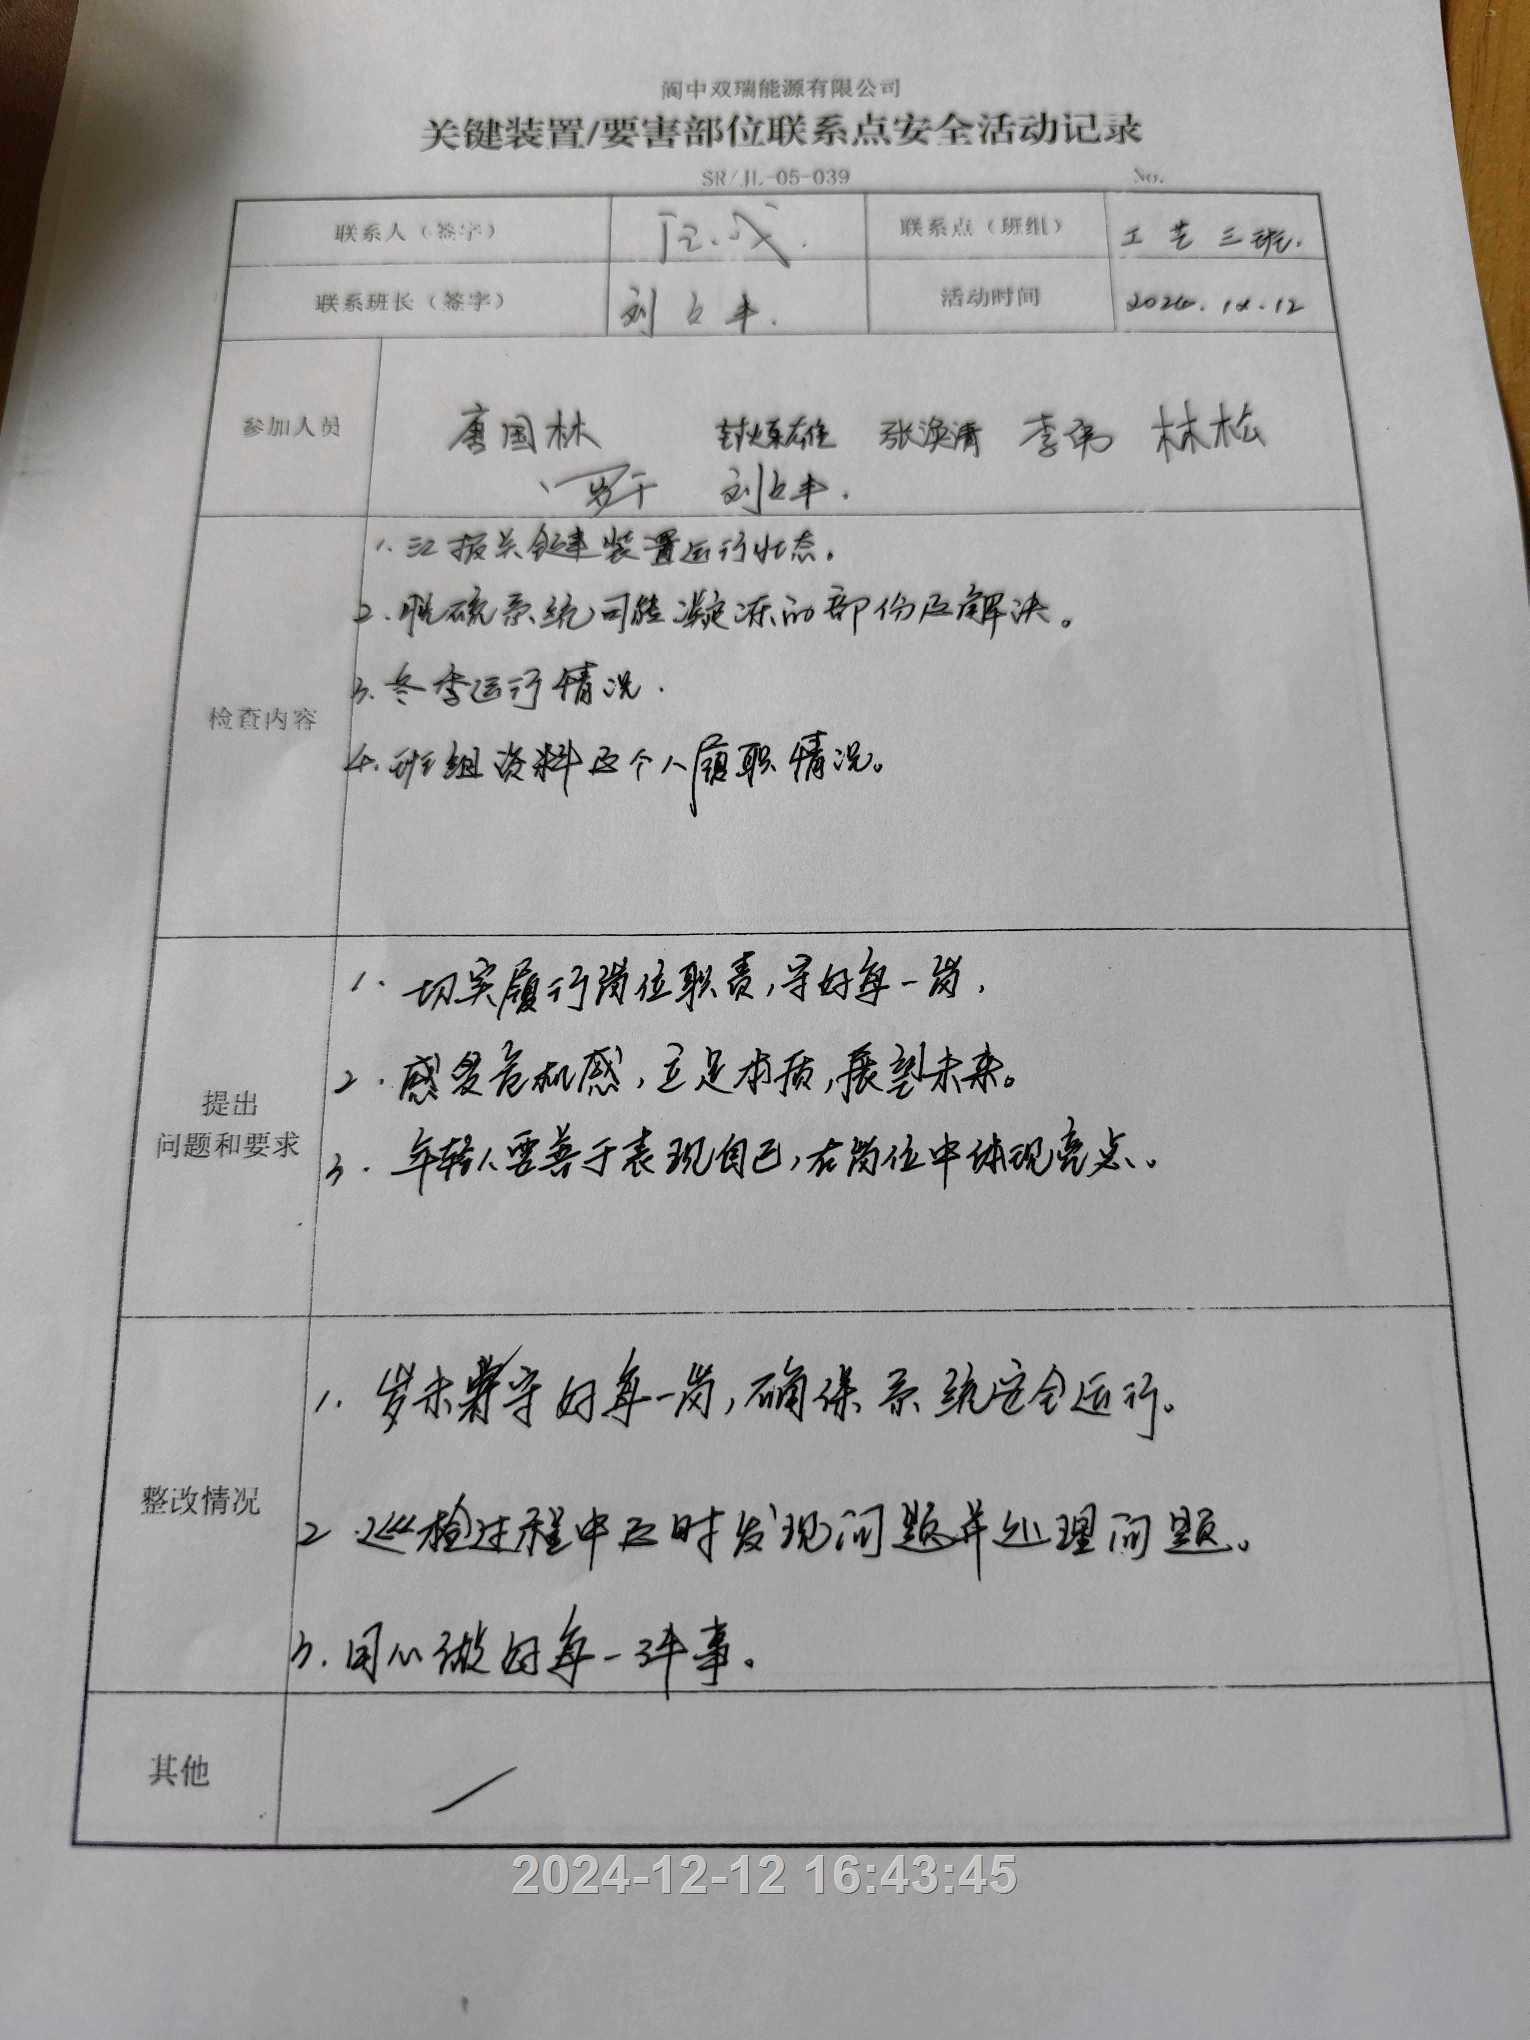 阆中双瑞能源有限公司
关键装置/要害部位联系点安全活动记录
SR/JL-05-039 No.
联系人（签字） 联系点（班组） 工艺三班.
联系班长（签字） 刘上丰. 活动时间 2024.12.12
参加人员 唐国林 封炼雄 张涣清 李 林松
罗干 刘上丰.
检查内容
1.汇报关键装置运行状态。
2.脱硫系统可能凝冻的部份及解决。
3.冬季运行情况.
4.班组资料及个人履职情况。
提出
问题和要求
1.切实履行岗位职责,守好每一岗,
2.感受危机感,立足本质,展望未来。
3.年轻人要善于表现自己,在岗位中体现亮点。
整改情况
1.岁末守好每一岗,确保系统安全运行。
2.巡检过程中及时发现问题并处理问题。
3.用心做好每一件事。
其他 /
2024-12-12 16:43:45